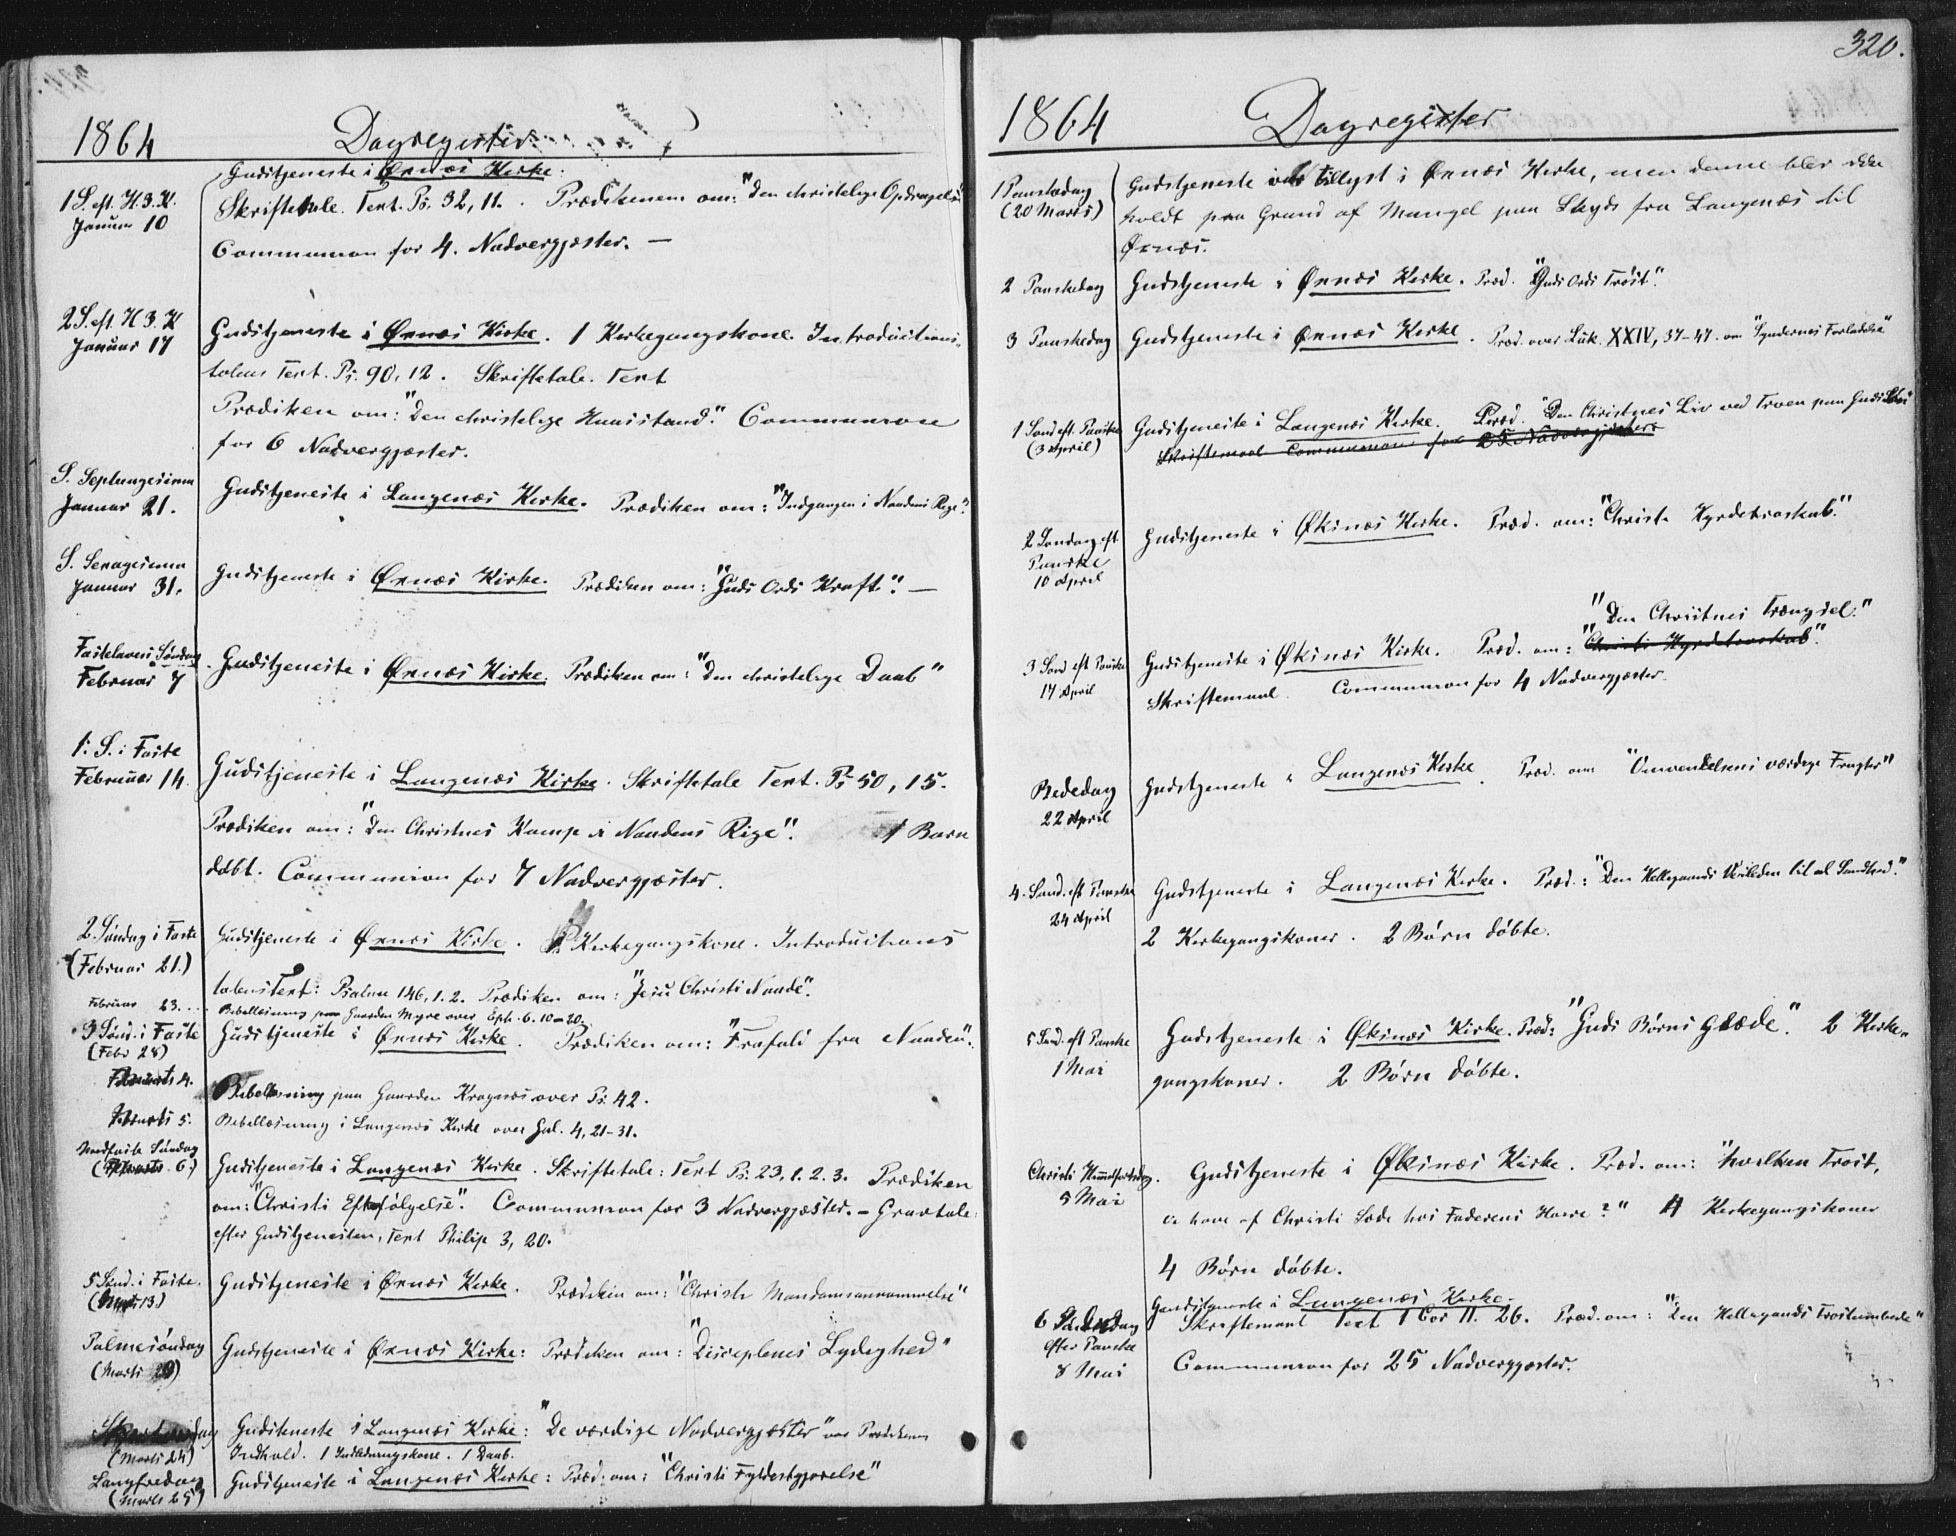 1864 Dagregister
Gudstjeneste i Øxnæs Kirke:
1 S. eft. H. 3. K. Skriftetale. Text. Ps. 32, 11. Prædikenen om: "Den christelige Opdragelse"
Januar 10
Communion for 4. Nadvergjæster. —
2 S. eft. H 3. K Gudstjeneste i Øxnæs Kirke. 1 Kirkegangskone. Introductions-
Januar 17
talens Text. Ps. 90, 12. Skriftetale. Text
Prædiken om: "Den christelige Huusstand". Communion
for 6 Nadvergjæster.
S. Septuagesima Gudstjeneste i Langenæs Kirke. Prædiken om: "Indgangen i Naadens Rige".
Januar 21.
S. Sexagesima Gudstjeneste i Øxnæs Kirke. Prædiken om: "Guds Ords Kraft". —
Januar 31.
Fastelavns Søndag Gudstjeneste i Øxnæs Kirke. Prædiken om: "Den christelige Daab"
Februar 7
1. S. i Faste
Februar 14. Gudstjeneste i Langenæs Kirke. Skriftetale Text. Ps 50, 15.
Prædiken om: "Den Christnes Kamp i Naadens Rige". 1 Barn
døbt. Communion for 7 Nadvergjæster.
2. Søndag i Faste Gudstjeneste i Øxnæs Kirke. Kirkegangskone. Introductions
(Februar 21.)
talens Text: Psalme 146, 1. 2. Prædiken om: "Jesu Christi Naade".
Februar 23. Bibellæsning paa Gaarden Myre over Eph. 6. 10-20.
3 Sønd. i Faste Gudstjeneste i Øxnæs Kirke. Prædiken om: "Frafald fra Naaden".
(Febr 28)
Marts 4. Bibellæsning paa Gaarden Kragnæs over Ps. 42.
Marts 5. Bibellæsning i Langenæs Kirke over Gal. 4, 21-31.
Midfaste Søndag Gudstjeneste i Langenæs Kirke. Skriftetale: Text Ps. 23, 1. 2. 3. Prædiken
(Marts 6.)
om: "Christi Efterfølgelse". Communion for 3 Nadvergjæster. - Gravtale
efter Gudstjenesten, Text Philip 3, 20.
5 Sønd. i Faste. Gudstjeneste i Øxnæs Kirke. Prædiken om: "Christi Mandomsannammelse"
(Marts 13.)
Palmesøndag Gudstjeneste i Øxnæs Kirke: Prædiken om: "Disciplenes Lydighed"
(Marts 20)
Skjærtorsdag Gudstjeneste i Langenæs Kirke: "De værdige Nadvergjæster" var Prædikens
(Marts 24) Indhold. 1 Indledningskone. 1 Daab.
Langfredag Gudstjeneste i Langenæs Kirke: Præd. om: "Christi Fyldestgjørelse"
(Marts 25)
320.
1864 Dagregister
1 Paaskedag Gudstjeneste var tillyst i Øxnæs Kirke, men denne blev ikke
(20 Marts) holdt paa Grund af Mangel paa Skyds fra Langenæs til
Øxnæs.
2 Paaskedag Gudstjeneste i Øxnæs Kirke. Præd. "Guds Ords Trøst".
3 Paaskedag Gudstjeneste i Øxnæs Kirke. Præd. over Luk. XXIV, 37-47. om "Syndernes Forladelse"
1 Sønd eft Paaske Gudstjeneste i Langenæs Kirke. Præd. "Den Christnes Liv ved Troen paa Guds
(3 April) Skriftemaal Communion for 25 Nadvergjæster
2 Søndag eft Gudstjeneste i Øksnæs Kirke. Præd. om: "Christi Hyrdetroskab."
Paaske
10 April
"Den Christnes Trængsel."
3 Sønd eft Paaske Gudstjeneste i Øksnæs Kirke. Præd. om: "Christi Hyrdetroskab".
17 April Skriftemaal. Communion for 4 Nadvergjæster.
Bededag Gudstjeneste i Langenæs Kirke. Præd. om "Omvendelsens værdige Frugter"
22 April
4. Sønd. eft Paaske Gudstjeneste i Langenæs Kirke. Præd.: "Den Helligaands Veileden til al Sandhed."
24 April
2 Kirkegangskoner. 2 Børn døbte.
5 Sønd. eft Paaske Gudstjeneste i Øksnæs Kirke. Præd: "Guds Børns Glæde". 2 Kirke-
1 Mai gangskoner. 2 Børn døbte.
Christi Himmelfartsdag. Gudstjeneste i Øksnæs Kirke. Præd. om: "hvilken Trøst,
5 Mai vi have af Christi Sæde hos Faderens Høire?" 4 Kirkegangskoner
4 Børn døbte.
Gudstjeneste i Langenæs Kirke.
6 Søndag Skriftemaal Text 1 Cor 11. 26. Præd. om: "Den Helligaands Trøsteembede"
efter Paaske
8 Mai Communion for 25 Nadvergjæster.